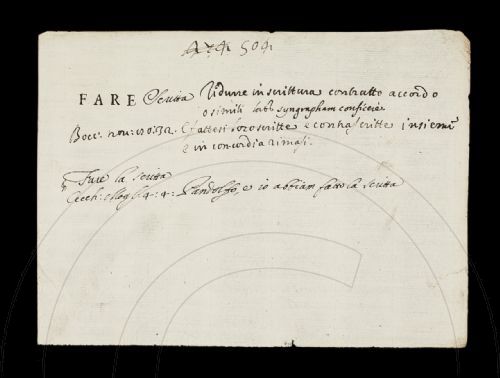 504
FARE Scritta Ridurre in scrittura contratto accordo
o simili latt. syngrapham conficere
Bocc: nov: 32. E fattesi loro scritte e contrascritte insieme
e in concordia rimasi.
Fare la scritta
Cecch: Mogl: 4: 4: Pandolfo, e io abbiam fatto la scritta